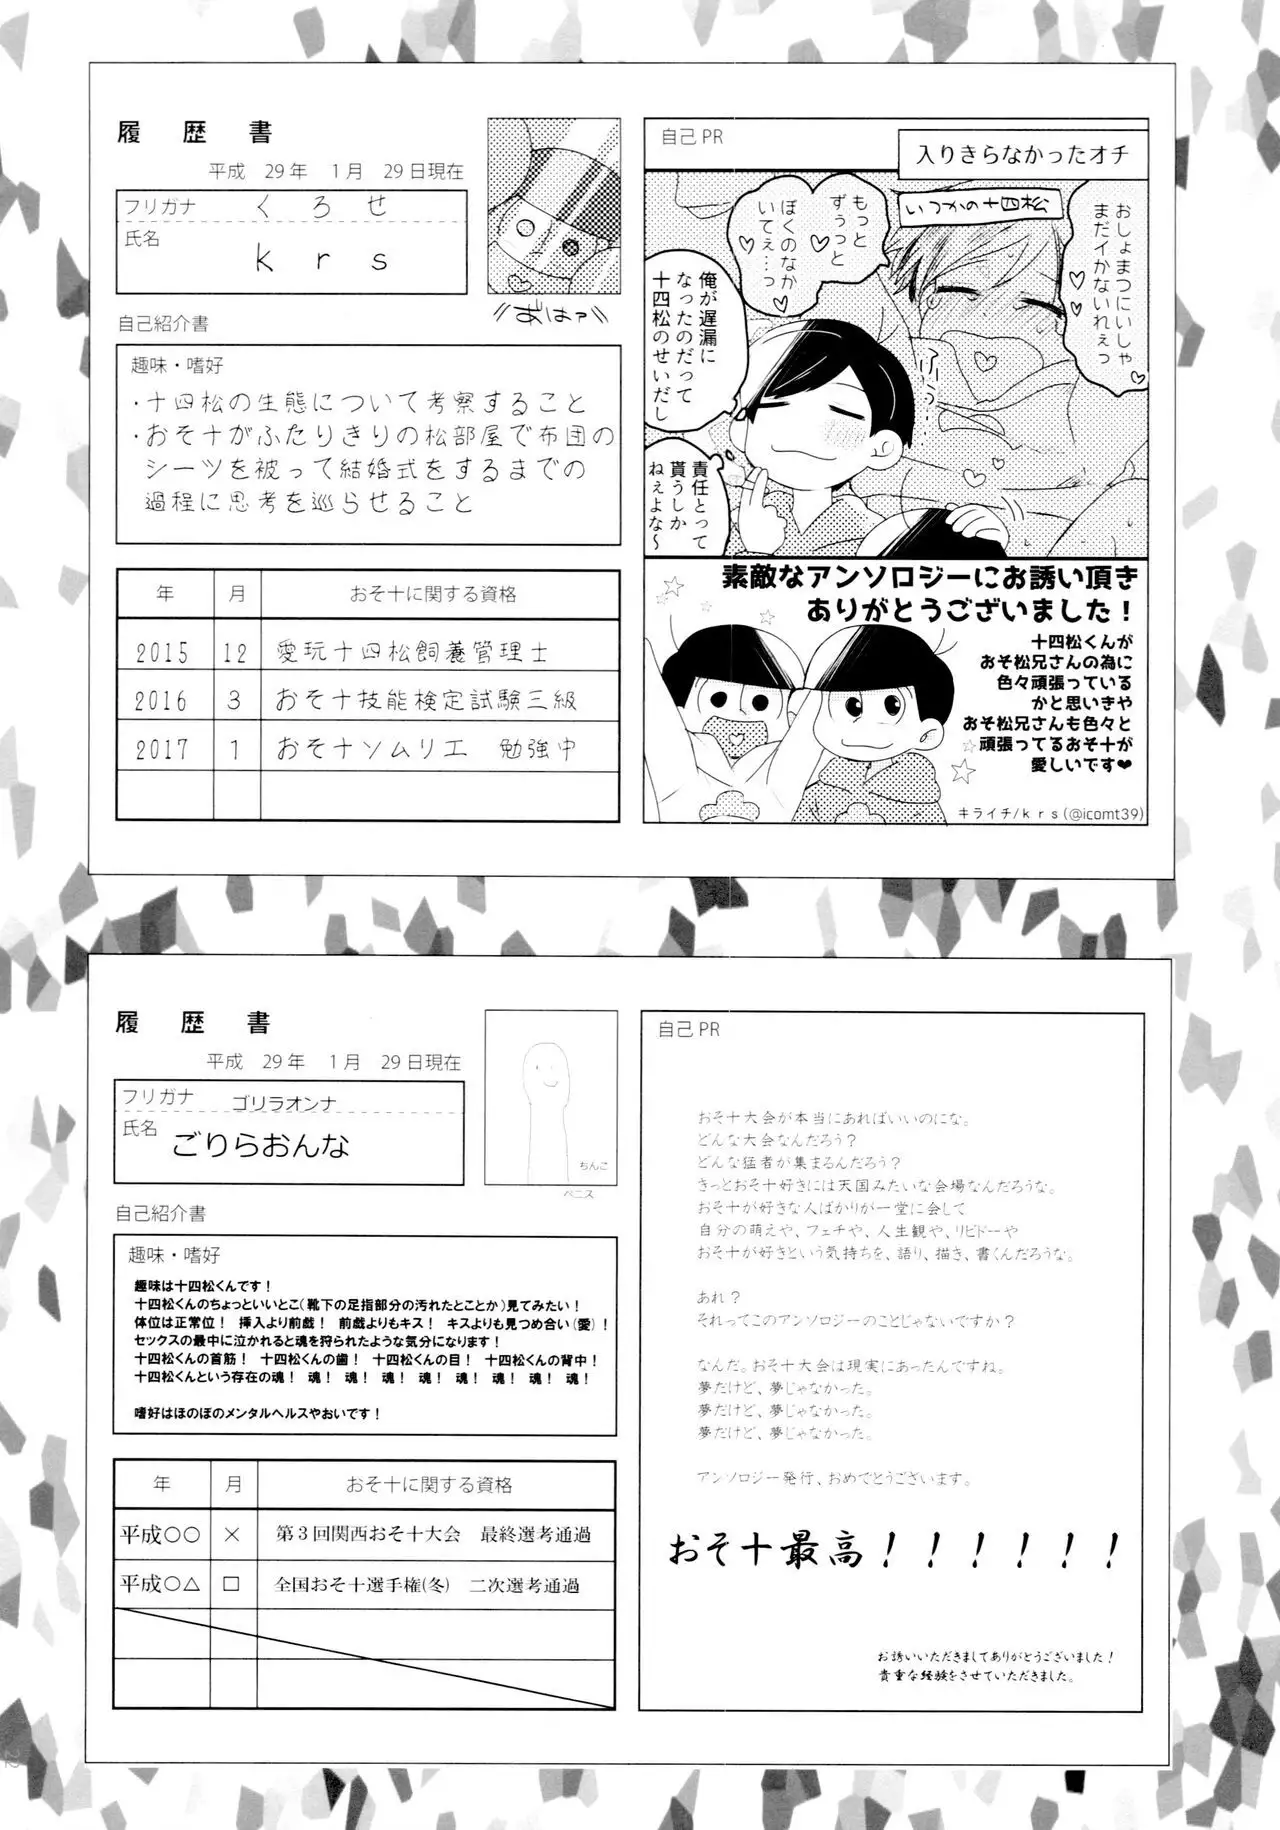 履歴書
平成 29年 1月 29日現在
フリガナ くろせ
氏名
krs
自己紹介書
趣味・嗜好
・十四松の生態について考察すること
・おそ十がふたりきりの松部屋で布団の
シーツを被って結婚式をするまでの
過程に思考を巡らせること
年 月 おそ十に関する資格
2015 12 愛玩十四松飼養管理士
2016 3 おそ十技能検定試験三級
2017 1 おそ十ソムリエ 勉強中
自己PR
入りきらなかったオチ
いつかの十四松
おしょまつにいしゃ
まだイかないれぇっ
もっと
ずぅっと
ぼくのなか
いてぇ…っ
俺が遅漏に
なったのだって
十四松のせいだし
責任とって
貰うしか
ねぇよな～
素敵なアンソロジーにお誘い頂き
ありがとうございました！
十四松くんが
おそ松兄さんの為に
色々頑張っている
かと思いきや
おそ松兄さんも色々と
頑張ってるおそ十が
愛しいです♥
キライチ/krs(@icomt39)
履歴書
平成 29年 1月 29日現在
フリガナ ゴリラオンナ
氏名
ごりらおんな
ちんこ
ペニス
自己紹介書
趣味・嗜好
趣味は十四松くんです！
十四松くんのちょっといいとこ（靴下の足指部分の汚れたとことか）見てみたい！
体位は正常位！ 挿入より前戯！ 前戯よりもキス！ キスよりも見つめ合い（愛）！
セックスの最中に泣かれると魂を狩られたような気分になります！
十四松くんの首筋！ 十四松くんの歯！ 十四松くんの目！ 十四松くんの背中！
十四松くんという存在の魂！ 魂！ 魂！ 魂！ 魂！ 魂！ 魂！ 魂！ 魂！
嗜好はほのぼのメンタルヘルスやおいです！
年 月 おそ十に関する資格
平成○○ × 第3回関西おそ十大会 最終選考通過
平成○△ □ 全国おそ十選手権(冬) 二次選考通過
自己PR
おそ十大会が本当にあればいいのにな。
どんな大会なんだろう？
どんな猛者が集まるんだろう？
きっとおそ十好きには天国みたいな会場なんだろうな。
おそ十が好きな人ばかりが一堂に会して
自分の萌えや、フェチや、人生観や、リビドーや
おそ十が好きという気持ちを、語り、描き、書くんだろうな。
あれ？
それってこのアンソロジーのことじゃないですか？
なんだ。おそ十大会は現実にあったんですね。
夢だけど、夢じゃなかった。
夢だけど、夢じゃなかった。
夢だけど、夢じゃなかった。
アンソロジー発行、おめでとうございます。
おそ十最高！！！！！！
お誘いいただきましてありがとうございました！
貴重な経験をさせていただきました。